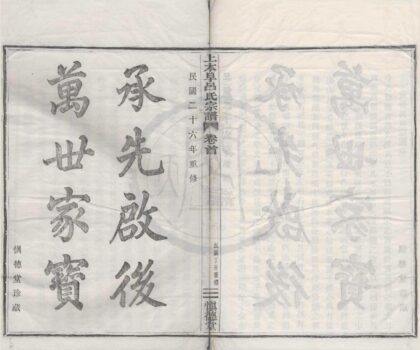 上本阜呂氏宗譜 卷首
德堂
民國二十六年重修
承先啟後
萬世家寶
德堂珍藏